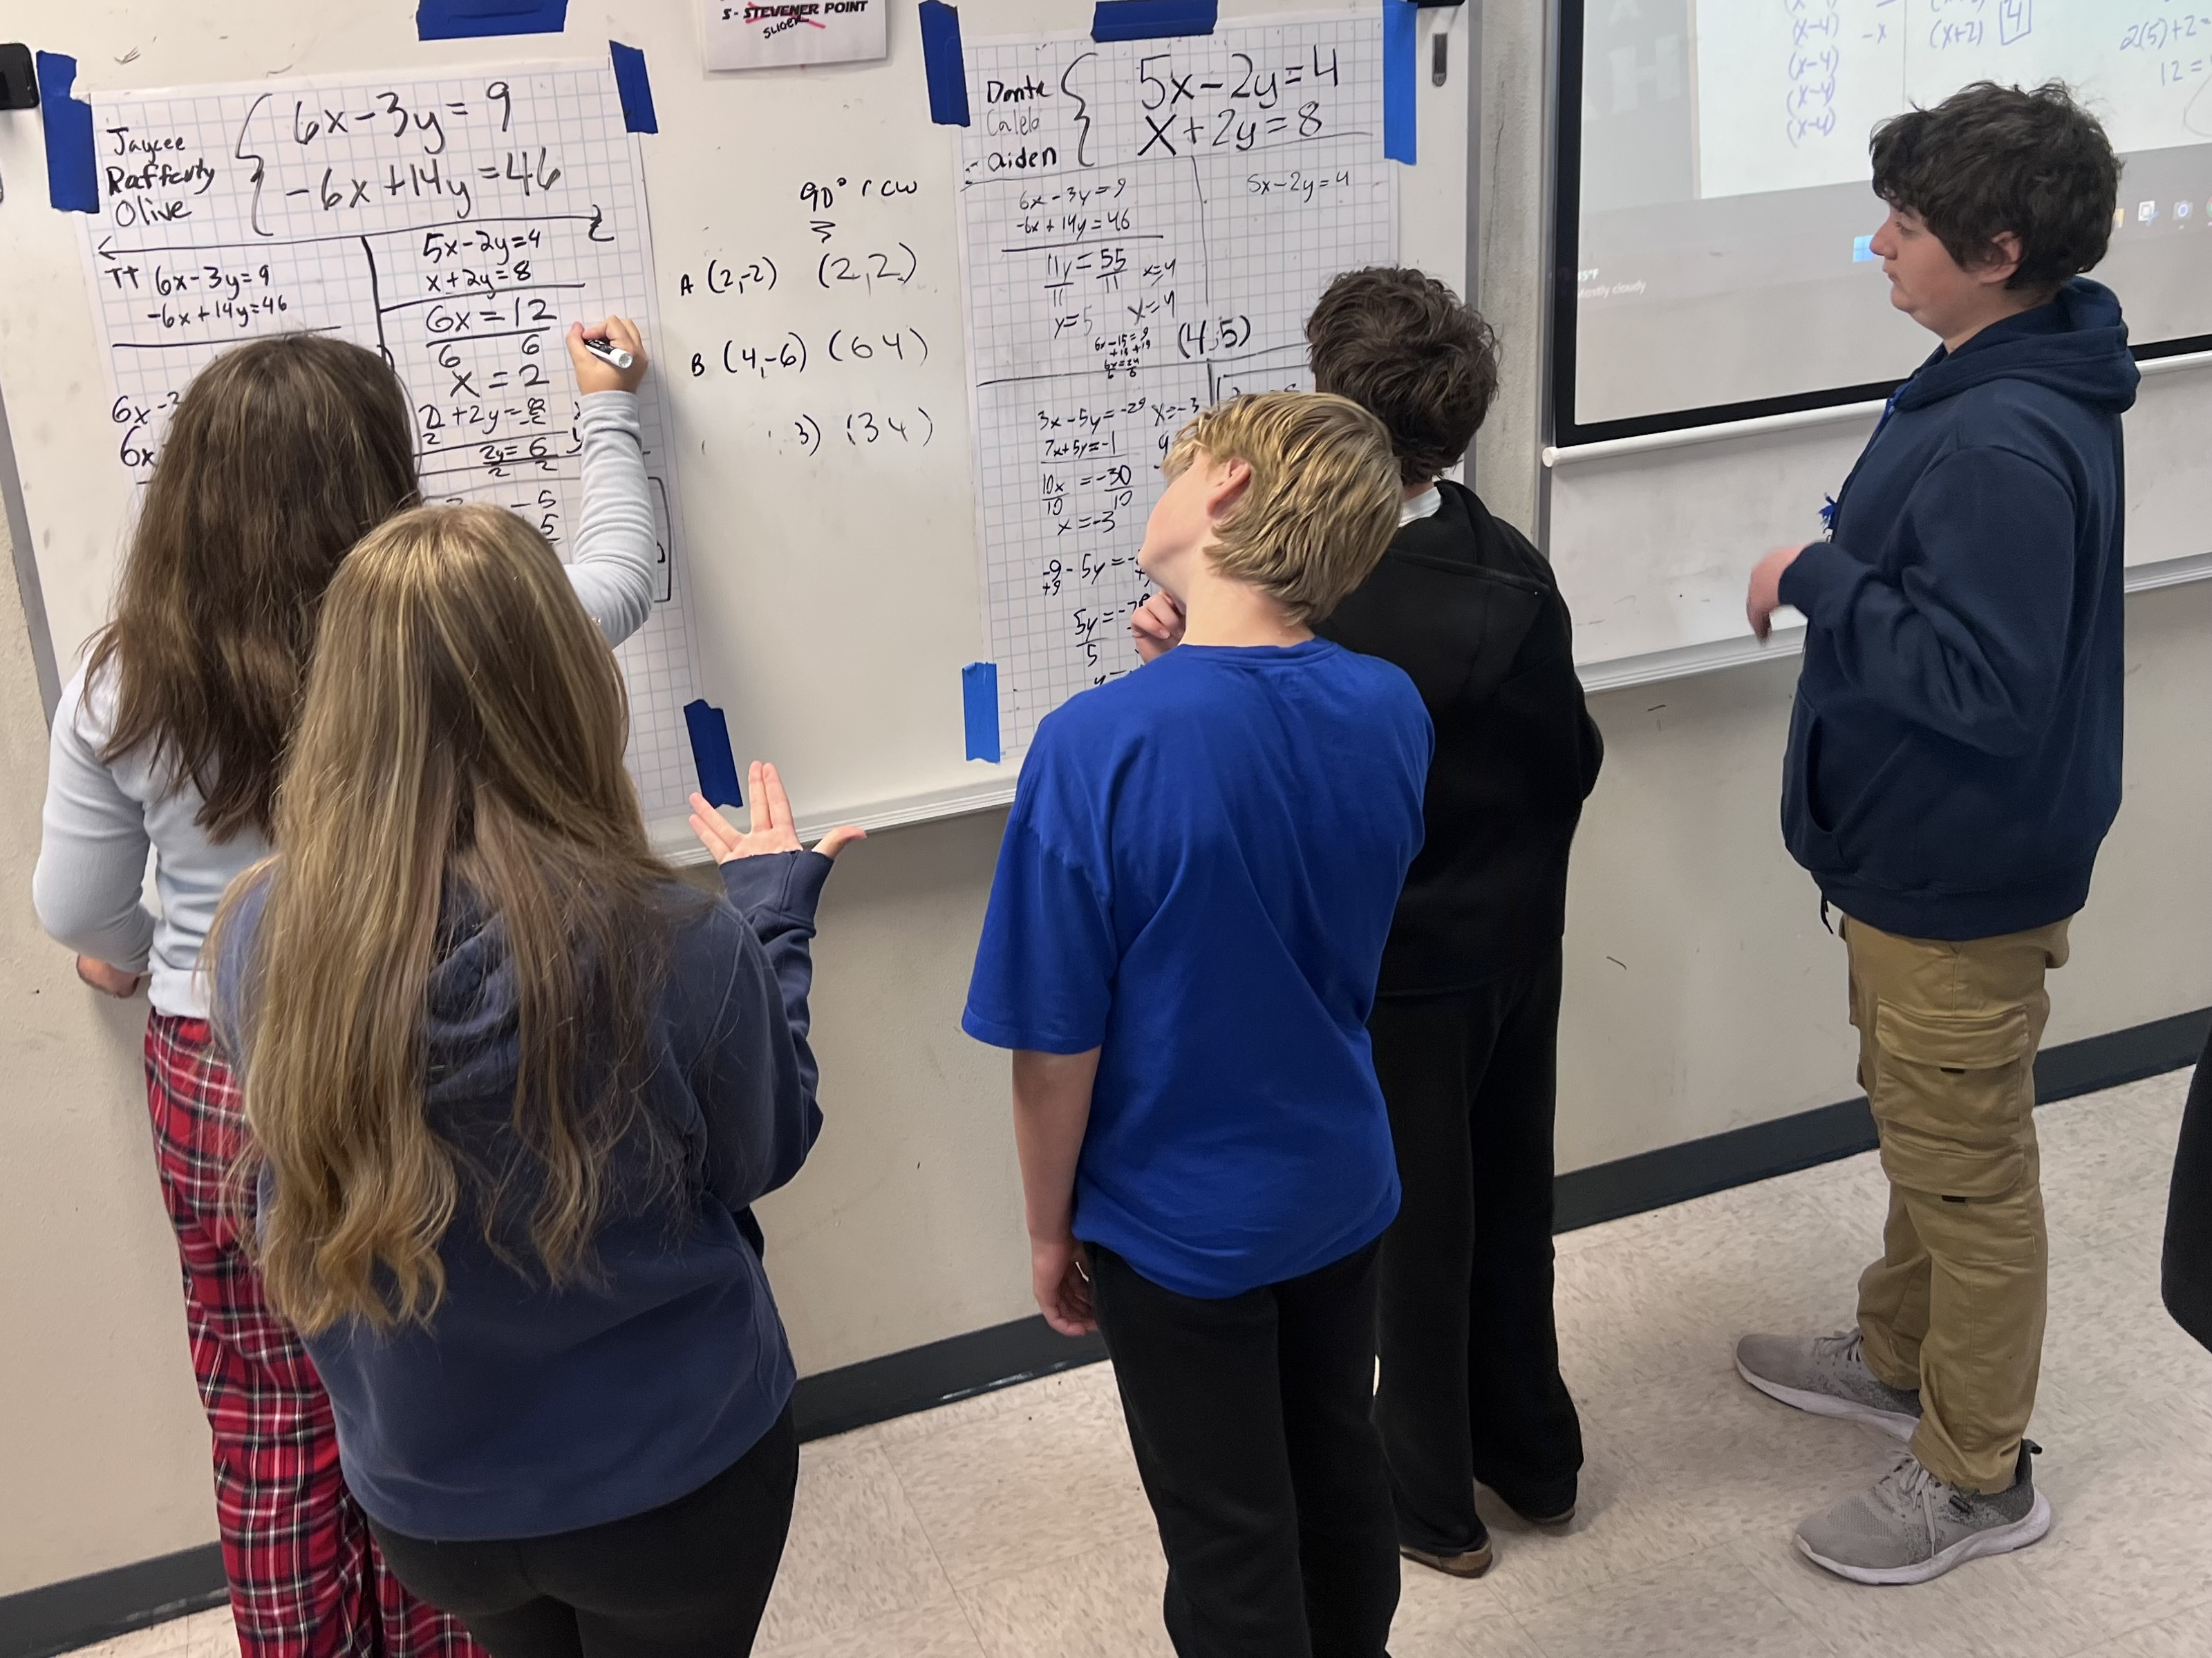 S - STEVENER POINT
SLIDER
Jaycee
Rafferty
Olive
6x-3y=9
-6x+14y=46
TT 6x-3y=9
-6x+14y=46
6x
6x
5x-2y=4
x+2y=8
6x=12
6 6
x=2
2+2y=8
2 -2
2y=6
2 2
-5
5
90° r cw
A (2,-2) (2,2)
B (4,-6) (6 4)
3) (3 4)
Dante
Caleb
aiden
5x-2y=4
x+2y=8
6x-3y=9
-6x+14y=46
11y=55
11 11
x=4
y=5 x=4
6x-15=9
+15 +15
6x=24
6 6
(4,5)
5x-2y=4
3x-5y=-29 x=-3
7x+5y=-1
10x=-30
10 10
x=-3
-9-5y=-
+9
5y=-
5
(x-4) -x (x+2) 4
(x-4)
(x-4)
(x-4)
2(5)+2=
12=
Mostly cloudy